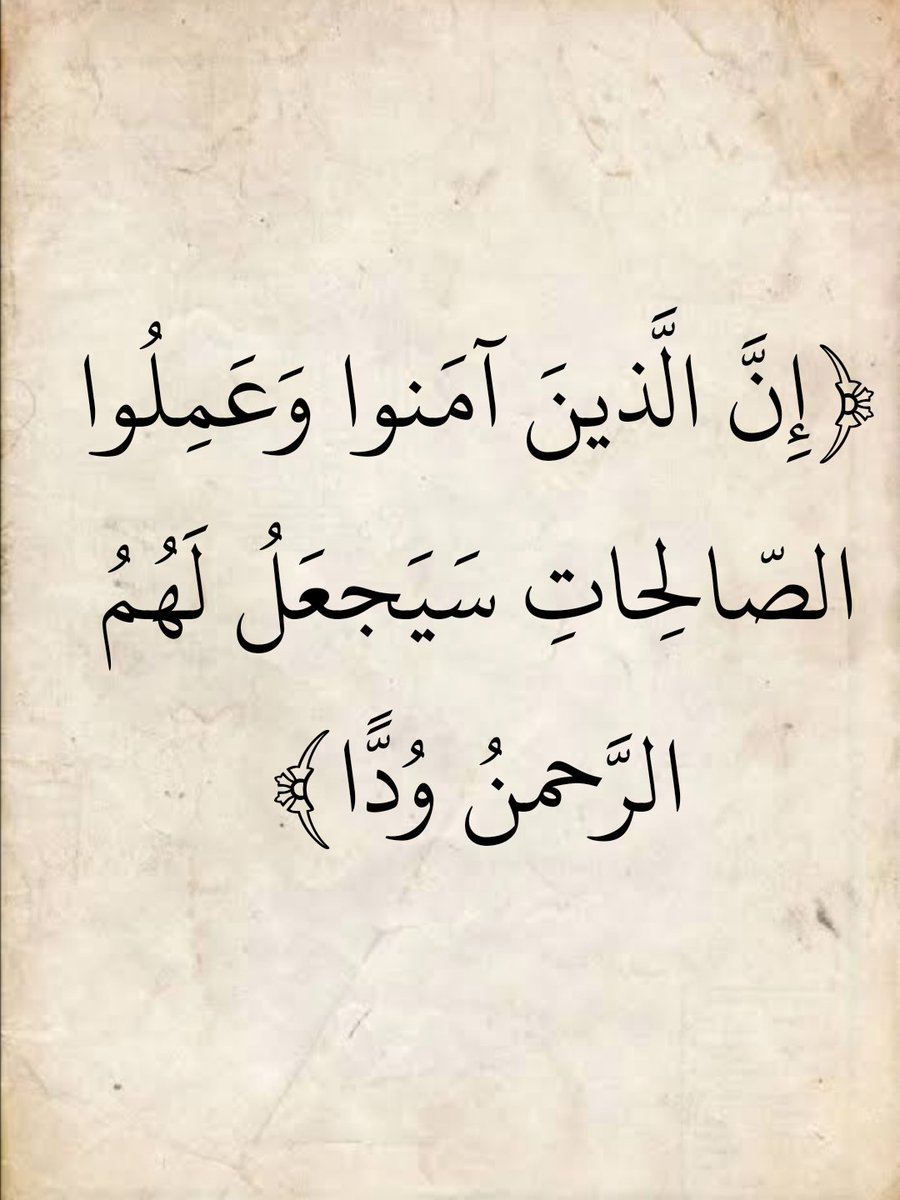 ﴿إِنَّ الَّذينَ آمَنوا وَعَمِلُوا
الصّالِحاتِ سَيَجعَلُ لَهُمُ
الرَّحمنُ وُدًّا﴾